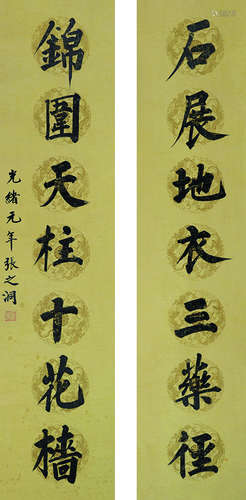 石展地衣三藥徑
錦圍天柱十花檣
光緒元年張之洞